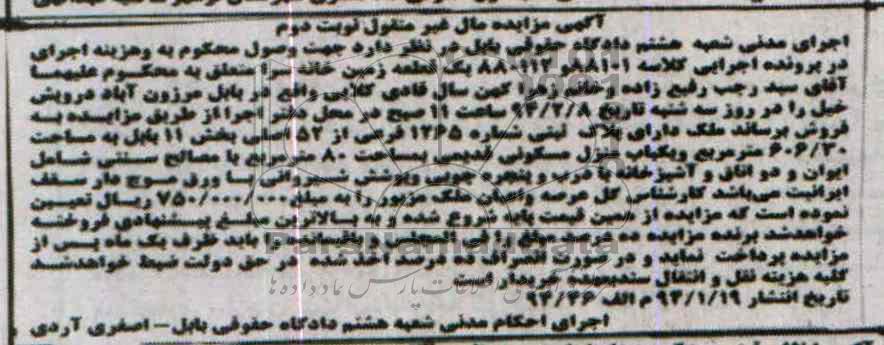 آگهی مزایده مال غیر منقول نوبت دوم
اجرای مدنی شعبه هشتم دادگاه حقوقی بابل در نظر دارد جهت وصول محکوم به وهزینه اجرای
در پرونده اجرایی کلاسه یک قطعه زمین خانه سرا متعلق به محکوم علیهما
آقای سید رجب رفیع زاده وخانم زهرا کهن سال قادی کلایی واقع در بابل مرزون آباد درویش
خیل را در روز سه شنبه تاریخ ۹۳/۲/۸ ساعت ۱۱ صبح در محل دفتر اجرا از طریق مزایده به
فروش برساند ملک دارای پلاک ثبتی شماره ۱۲۶۵ فرعی از ۵۲ اصلی بخش ۱۱ بابل به مساحت
۶۰۶/۳۰ مترمربع ویکباب منزل مسکونی قدیمی بمساحت ۸۰ مترمربع با مصالح سنتی شامل
ایوان و دو اتاق و آشپزخانه با درب و پنجره چوبی وپوشش شیروانی با ورق موج دار سقف
ایرانیت می‌باشد کارشناس کل عرصه واعیان ملک مزبور را به مبلغ ۷۵۰/۰۰۰/۰۰۰ ریال تعیین
نموده است که مزایده از همین قیمت پایه شروع شده و به بالاترین مبلغ پیشنهادی فروخته
خواهدشد برنده مزایده ده درصد مبلغ را فی المجلس و را باید ظرف یک ماه پس از
مزایده پرداخت نماید و در صورت انصراف ده درصد اخذ شده در حق دولت ضبط خواهدشد
کلیه هزینه نقل و انتقال سند خریدار است
تاریخ انتشار ۹۳/۱/۱۹ م الف ۹۳/۳۶
اجرای احکام مدنی شعبه هشتم دادگاه حقوقی بابل – اصغری آردی